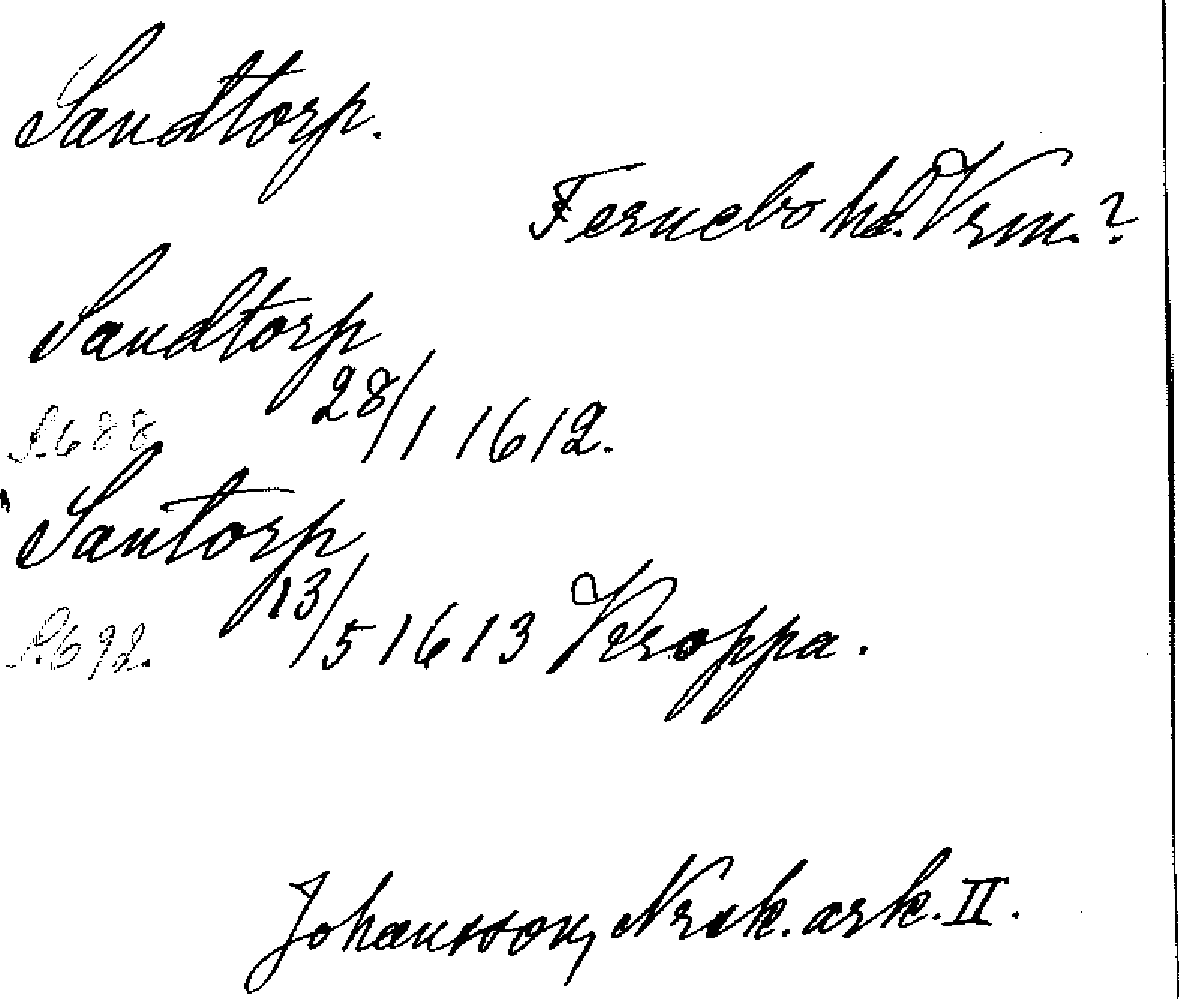 Sandtorp.
Fernebo hd. Vrm.?
Sandtorp
28/1 1612.
S. 688
Santorp
13/5 1613 Kroppa.
S. 692.
Johansson, Nrik. ark. II.